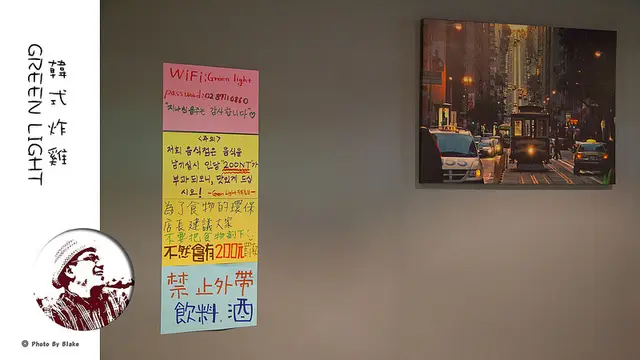 韓式炸雞
GREEN LIGHT
© Photo By Blake
WiFi:Green light
password:0289710860
<주의>
저희 음식점은 음식을
남기실시 인당 200NT가
부과되오니, 맛있게 드십
시오!
為了食物的環保
店長建議大家
不要把食物剩下!
不然會有200元罰款
禁止外帶
飲料、酒